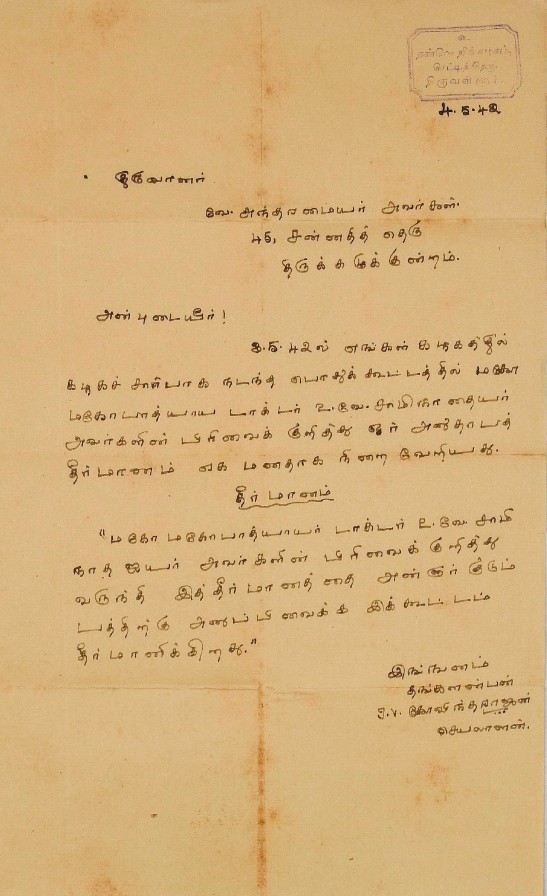 உ
திருவள்ளூர்.
4.5.42
திருவாளர்
வே. அவர்கள்.
45, சன்னதித் தெரு
திருக்கழுக்குன்றம்.
அன்புடையீர்!
3.5.42ல் எங்கள் கழகத்தில்
கழகச் சார்பாக நடந்த பொதுக் கூட்டத்தில் மகோ
மகோபாத்யாய டாக்டர் உ.வே. சாமிநாதையர்
அவர்களின் பிரிவைக் குறித்து ஓர் அநுதாபத்
தீர்மானம் ஏக மனதாக நிறை வேறியது.
தீர்மானம்
"மகோ மகோபாத்யாயர் டாக்டர் உ.வே. சாமி
நாத ஐயர் அவர்களின் பிரிவைக் குறித்து
வருந்தி இத்தீர்மானத்தை அன்னார் குடும்
பத்திற்கு அனுப்பிவைக்க இக் கூட்டம்
தீர்மானிக்கிறது."
இங்ஙனம்
தங்களன்பன்
கோவிந்தராஜன்
செயலாளன்.